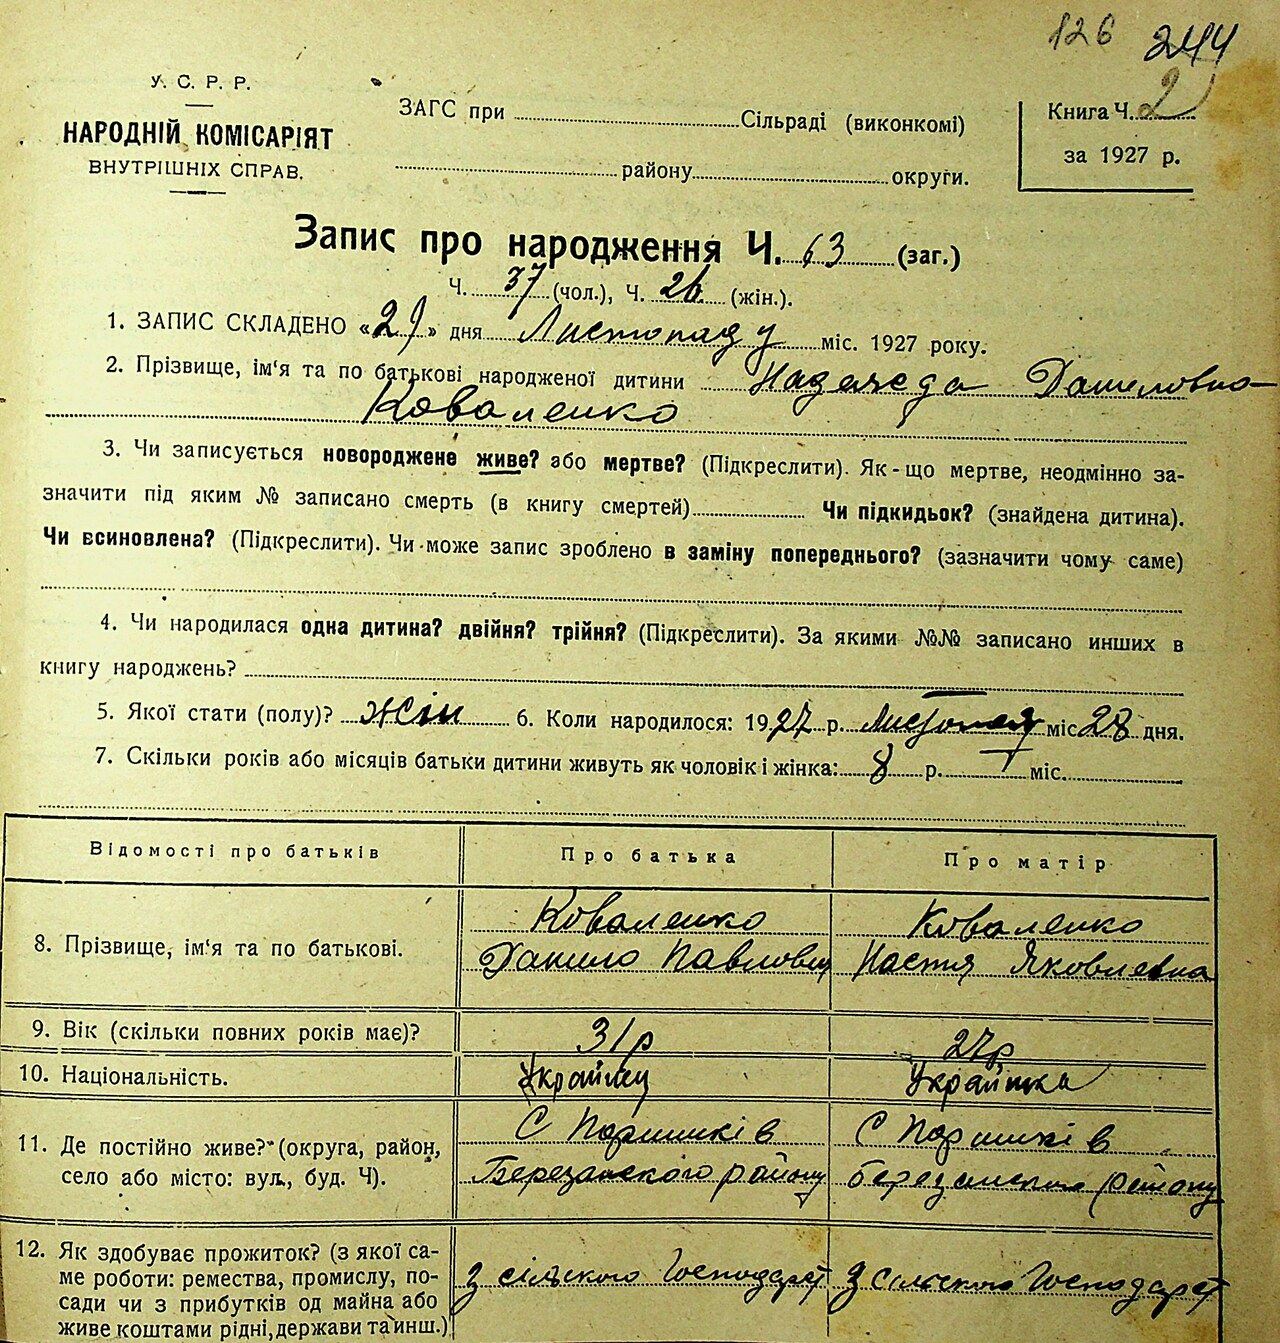 126 244
У. С. Р. Р.
НАРОДНІЙ КОМІСАРІЯТ
ВНУТРІШНІХ СПРАВ.
ЗАГС при Сільраді (виконкомі)
району округи.
Книга Ч. 2
за 1927 р.
Запис про народження Ч. 63 (заг.)
Ч. 37 (чол.), Ч. 26 (жін.).
1. ЗАПИС СКЛАДЕНО «29» дня Листопаду міс. 1927 року.
2. Прізвище, ім‘я та по батькові народженої дитини Надежда Даниловна
Коваленко
3. Чи записується новороджене живе? або мертве? (Підкреслити). Як-що мертве, неодмінно за-
значити під яким № записано смерть (в книгу смертей) Чи підкидьок? (знайдена дитина).
Чи всиновлена? (Підкреслити). Чи може запис зроблено в заміну попереднього? (зазначити чому саме)
4. Чи народилася одна дитина? двійня? трійня? (Підкреслити). За якими №№ записано инших в
книгу народжень?
5. Якої стати (полу)? жін 6. Коли народилося: 1927 р. Листопад міс 28 дня.
7. Скільки років або місяців батьки дитини живуть як чоловік і жінка: 8 р. міс.
Відомості про батьків Про батька Про матір
8. Прізвище, ім‘я та по батькові.
Коваленко
Данило Павлович
Коваленко
Настя Яковлевна
9. Вік (скільки повних років має)? 31р 27р
10. Національність. Українец Українка
11. Де постійно живе? (округа, район,
село або місто: вул., буд. Ч).
С Паришків
Березанского району
С Паришків
Березанского району
12. Як здобуває прожиток? (з якої са-
ме роботи: ремества, промислу, по-
сади чи з прибутків од майна або
живе коштами рідні, держави та инш.)
З сільского Господарст
З сільского Господарст